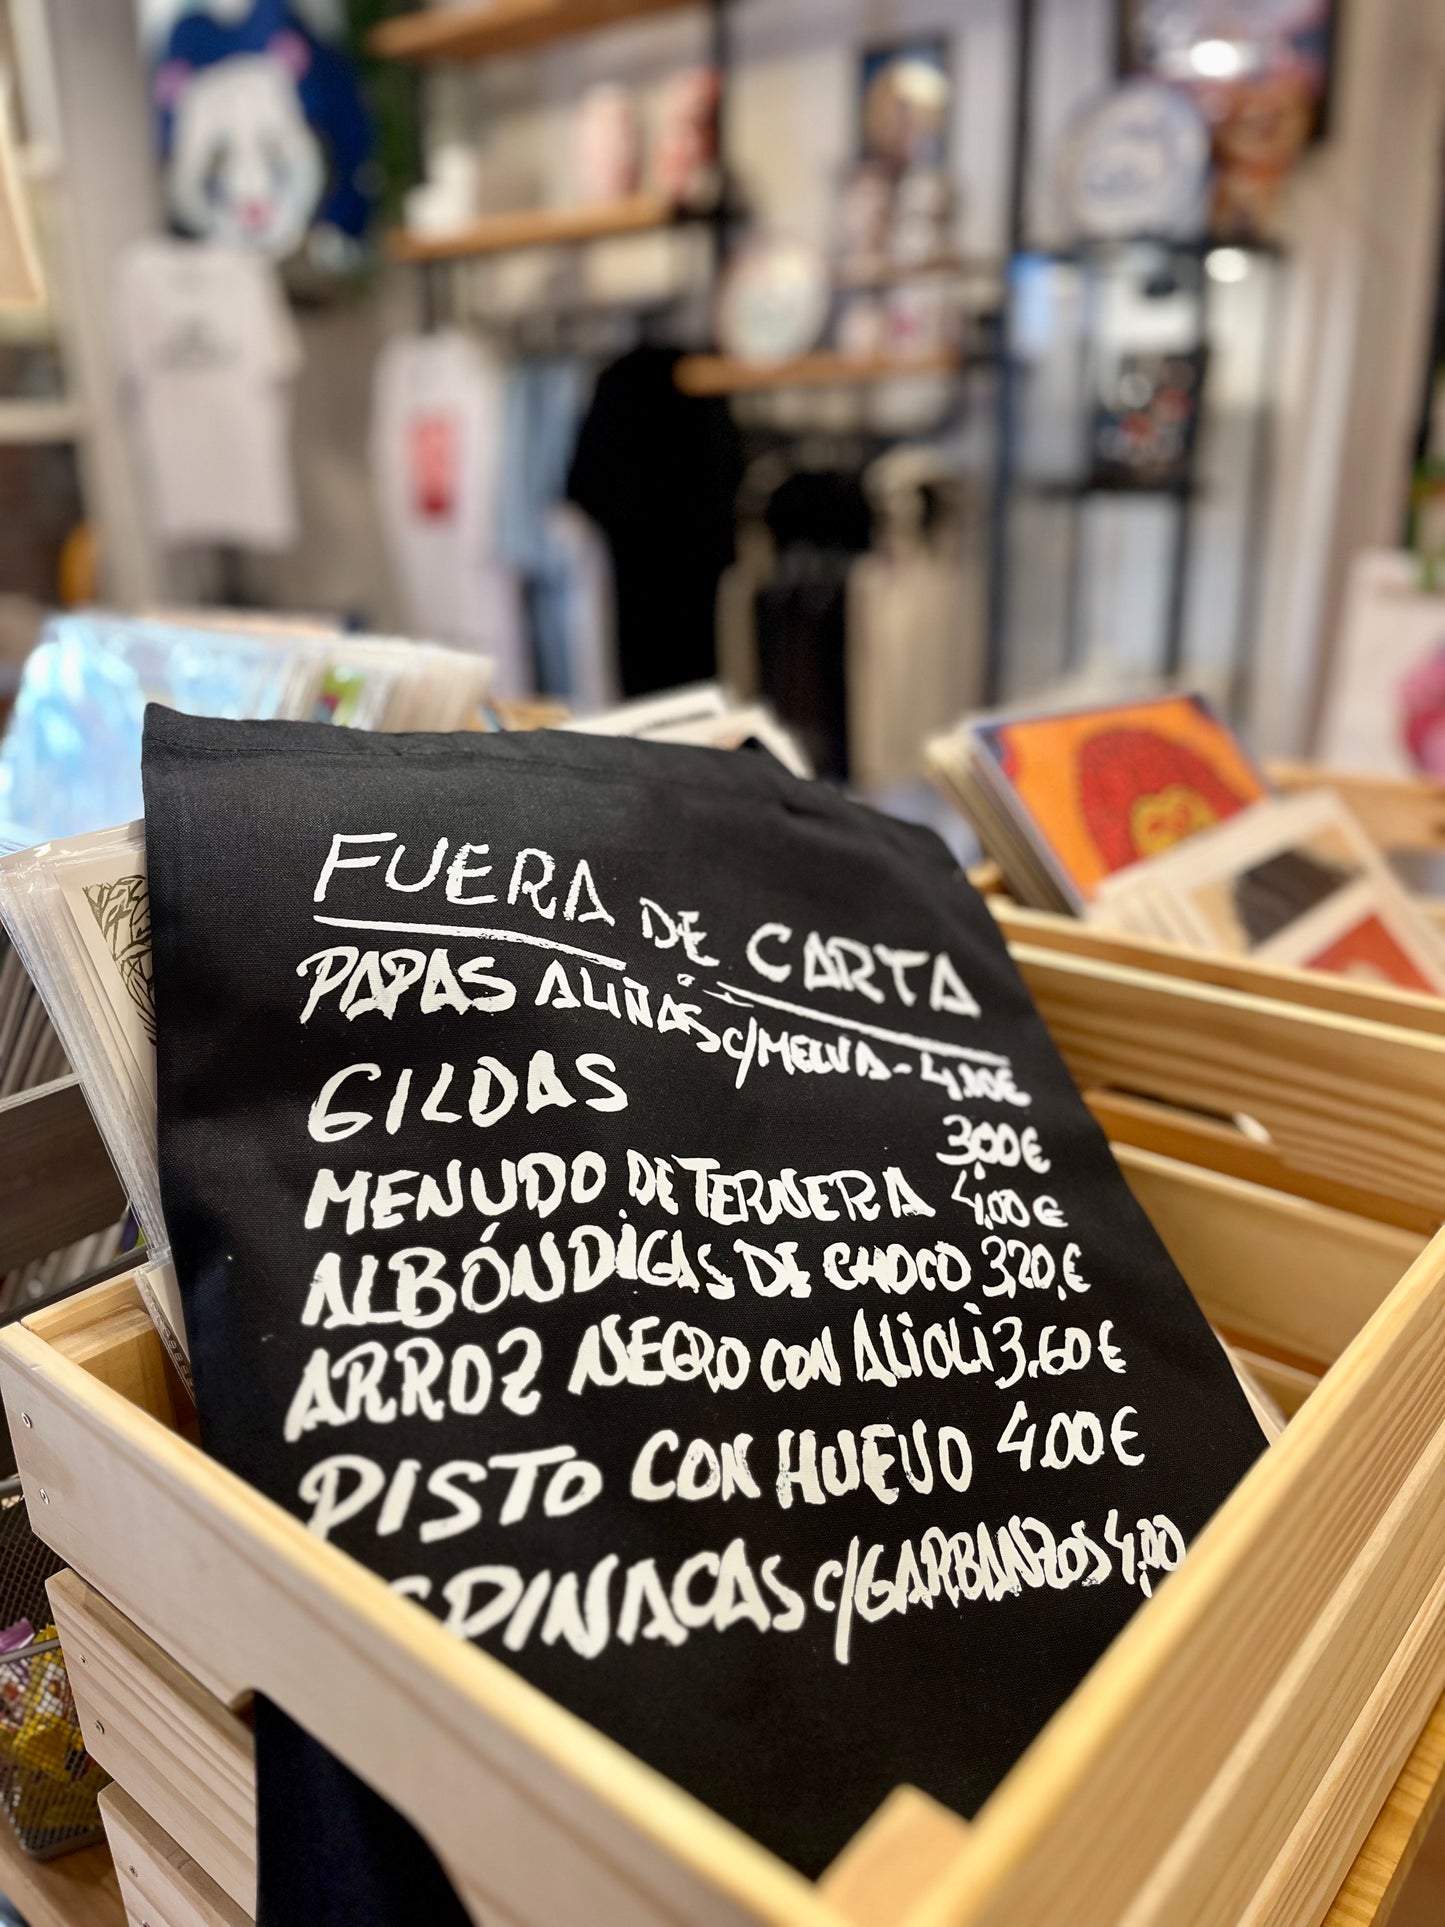 FUERA DE CARTA
PAPAS ALIÑÁS C/MELVA -
GILDAS 3,00€
MENUDO DE TERNERA 4,00€
ALBÓNDIGAS DE CHOCO 3,20,€
ARROZ NEGRO CON ALIOLI 3,60€
PISTO CON HUEVO 4.00€
SPINACAS C/GARBANZOS 4,00